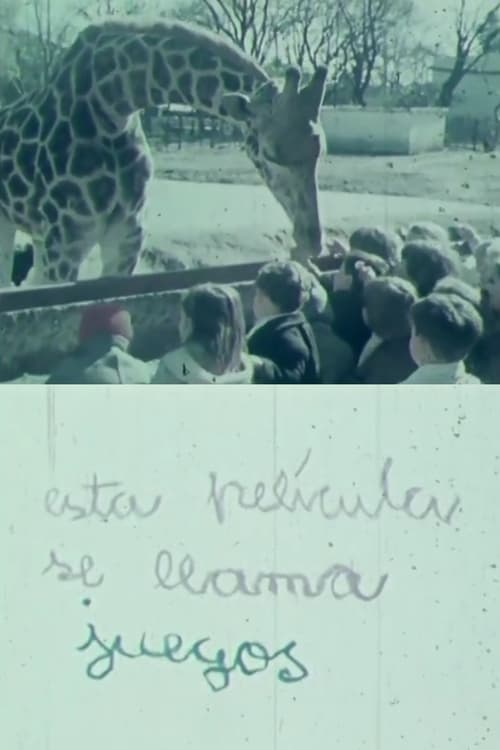 esta película
se llama
juegos